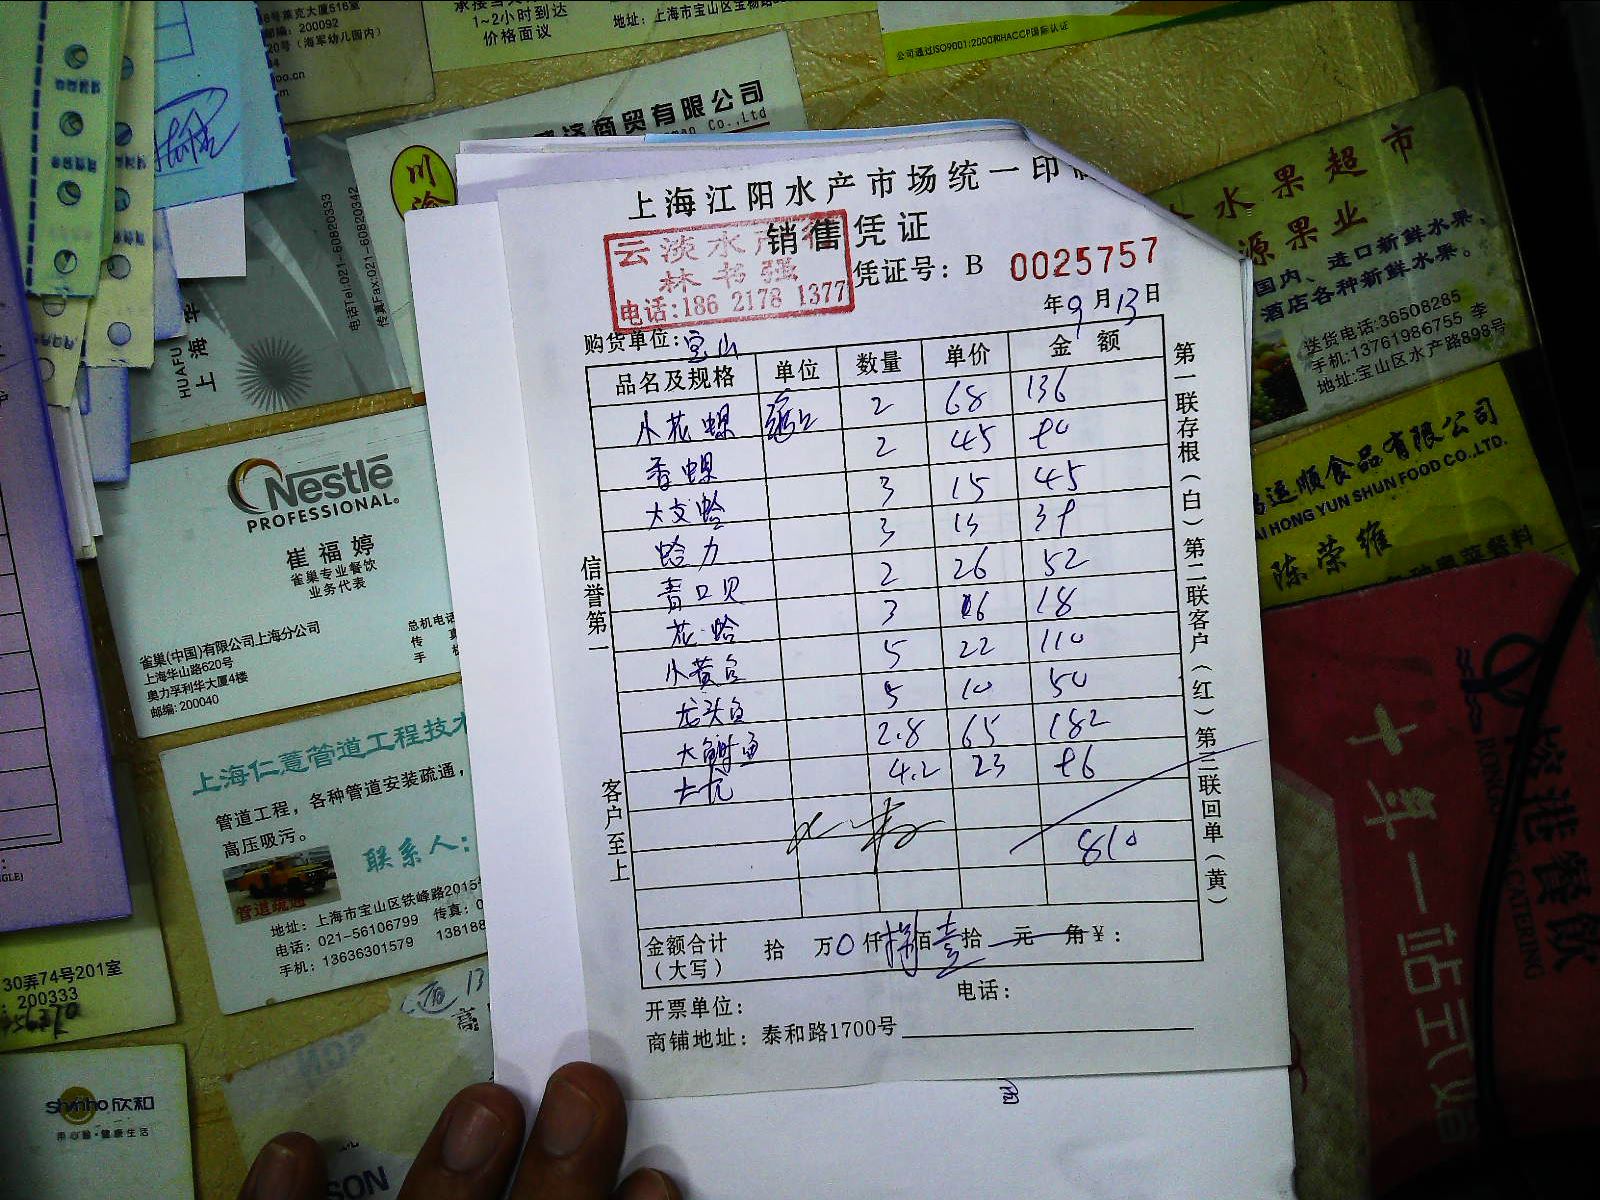 8号莱克大厦516室
邮编：200092
20号（海军幼儿园内）
1~2小时到达
价格面议
公司通过ISO9001:2000和HACCP国际认证
商贸有限公司
Co.,Ltd
川渝
电话Tel:021-60820333
传真Fax:021-60820342
HUAFU
上海华
Nestlé
PROFESSIONAL®
崔福婷
雀巢专业餐饮
业务代表
雀巢(中国)有限公司上海分公司
上海华山路620号
奥力孚利华大厦4楼
邮编: 200040
总机电话
传 真
手 机
上海仁薏管道工程技术
管道工程，各种管道安装疏通，
高压吸污。
联系人：
管道疏通
地址：上海市宝山区铁峰路2015号
电话：021-56106799 传真：0
手机：13636301579 138188
30弄74号201室
: 200333
shinho 欣和
上海江阳水产市场统一印
销售凭证
云淡水产行
林书强
电话:186 2178 1377
凭证号：B 0025757
年9月13日
购货单位：宝山
品名及规格 单位 数量 单价 金额
小花螺 2 68 136
香螺 2 45 90
大文蛤 3 15 45
蛤力 3 13 39
青口贝 2 26 52
花蛤 3 6 18
小黄鱼 5 22 110
龙头鱼 5 10 50
大鲥鱼 2.8 65 182
4.2 23 96
810
金额合计 拾 万0仟捌佰壹拾 元 角 ¥：
（大写）
开票单位：
电话：
商铺地址：泰和路1700号
信誉第一
客户至上
第一联存根（白）第二联客户（红）第三联回单（黄）
水果超市
源果业
国内、进口新鲜水果、
酒店各种新鲜水果。
送货电话:36508285
手机:13761986755 李
地址:宝山区水产路898号
运顺食品有限公司
HONG YUN SHUN FOOD CO.,LTD.
陈荣维
CATERING